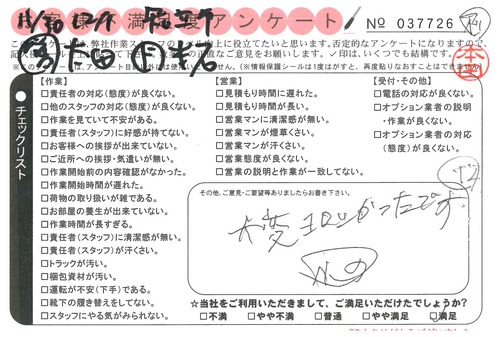 お客様不満足度アンケート
№ 037726
【作業】
□責任者の対応(態度)が良くない。
□他のスタッフの対応(態度)が良くない。
□作業を見ていて不安がある。
□責任者(スタッフ)に好感が持てない。
□お客様への挨拶が出来ていない。
□ご近所への挨拶・気遣いが無い。
□作業開始前の内容確認がなかった。
□作業開始時間が遅れた。
□荷物の取り扱いが雑である。
□お部屋の養生が出来ていない。
□作業時間が長すぎる。
□責任者(スタッフ)に清潔感が無い。
□責任者(スタッフ)が汗くさい。
□トラックが汚い。
□梱包資材が汚い。
□運転が不安(下手)である。
□靴下の履き替えをしてない。
□スタッフにやる気がみられない。
【営業】
□見積もり時間に遅れた。
□見積もり時間が長い。
□営業マンに清潔感が無い。
□営業マンが煙草くさい。
□営業マンが汗くさい。
□営業態度が良くない。
□営業の説明と作業が一致してない。
【受付・その他】
□電話の対応が良くない。
□オプション業者の説明
・作業が良くない。
□オプション業者の対応
(態度)が良くない。
チェックリスト
その他、ご意見・ご要望等ありましたらお書き下さい。
大変よかったです
☆当社をご利用いただきまして、ご満足いただけたでしょうか?
□不満 □やや不満 □普通 □やや満足 □満足